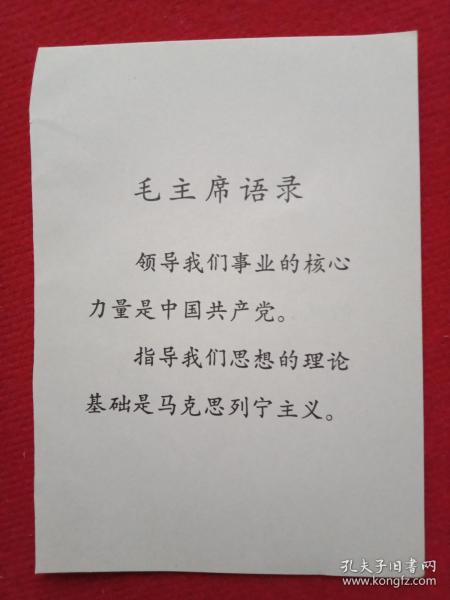 毛主席语录
领导我们事业的核心
力量是中国共产党。
指导我们思想的理论
基础是马克思列宁主义。
孔夫子旧书网
www.kongfz.com